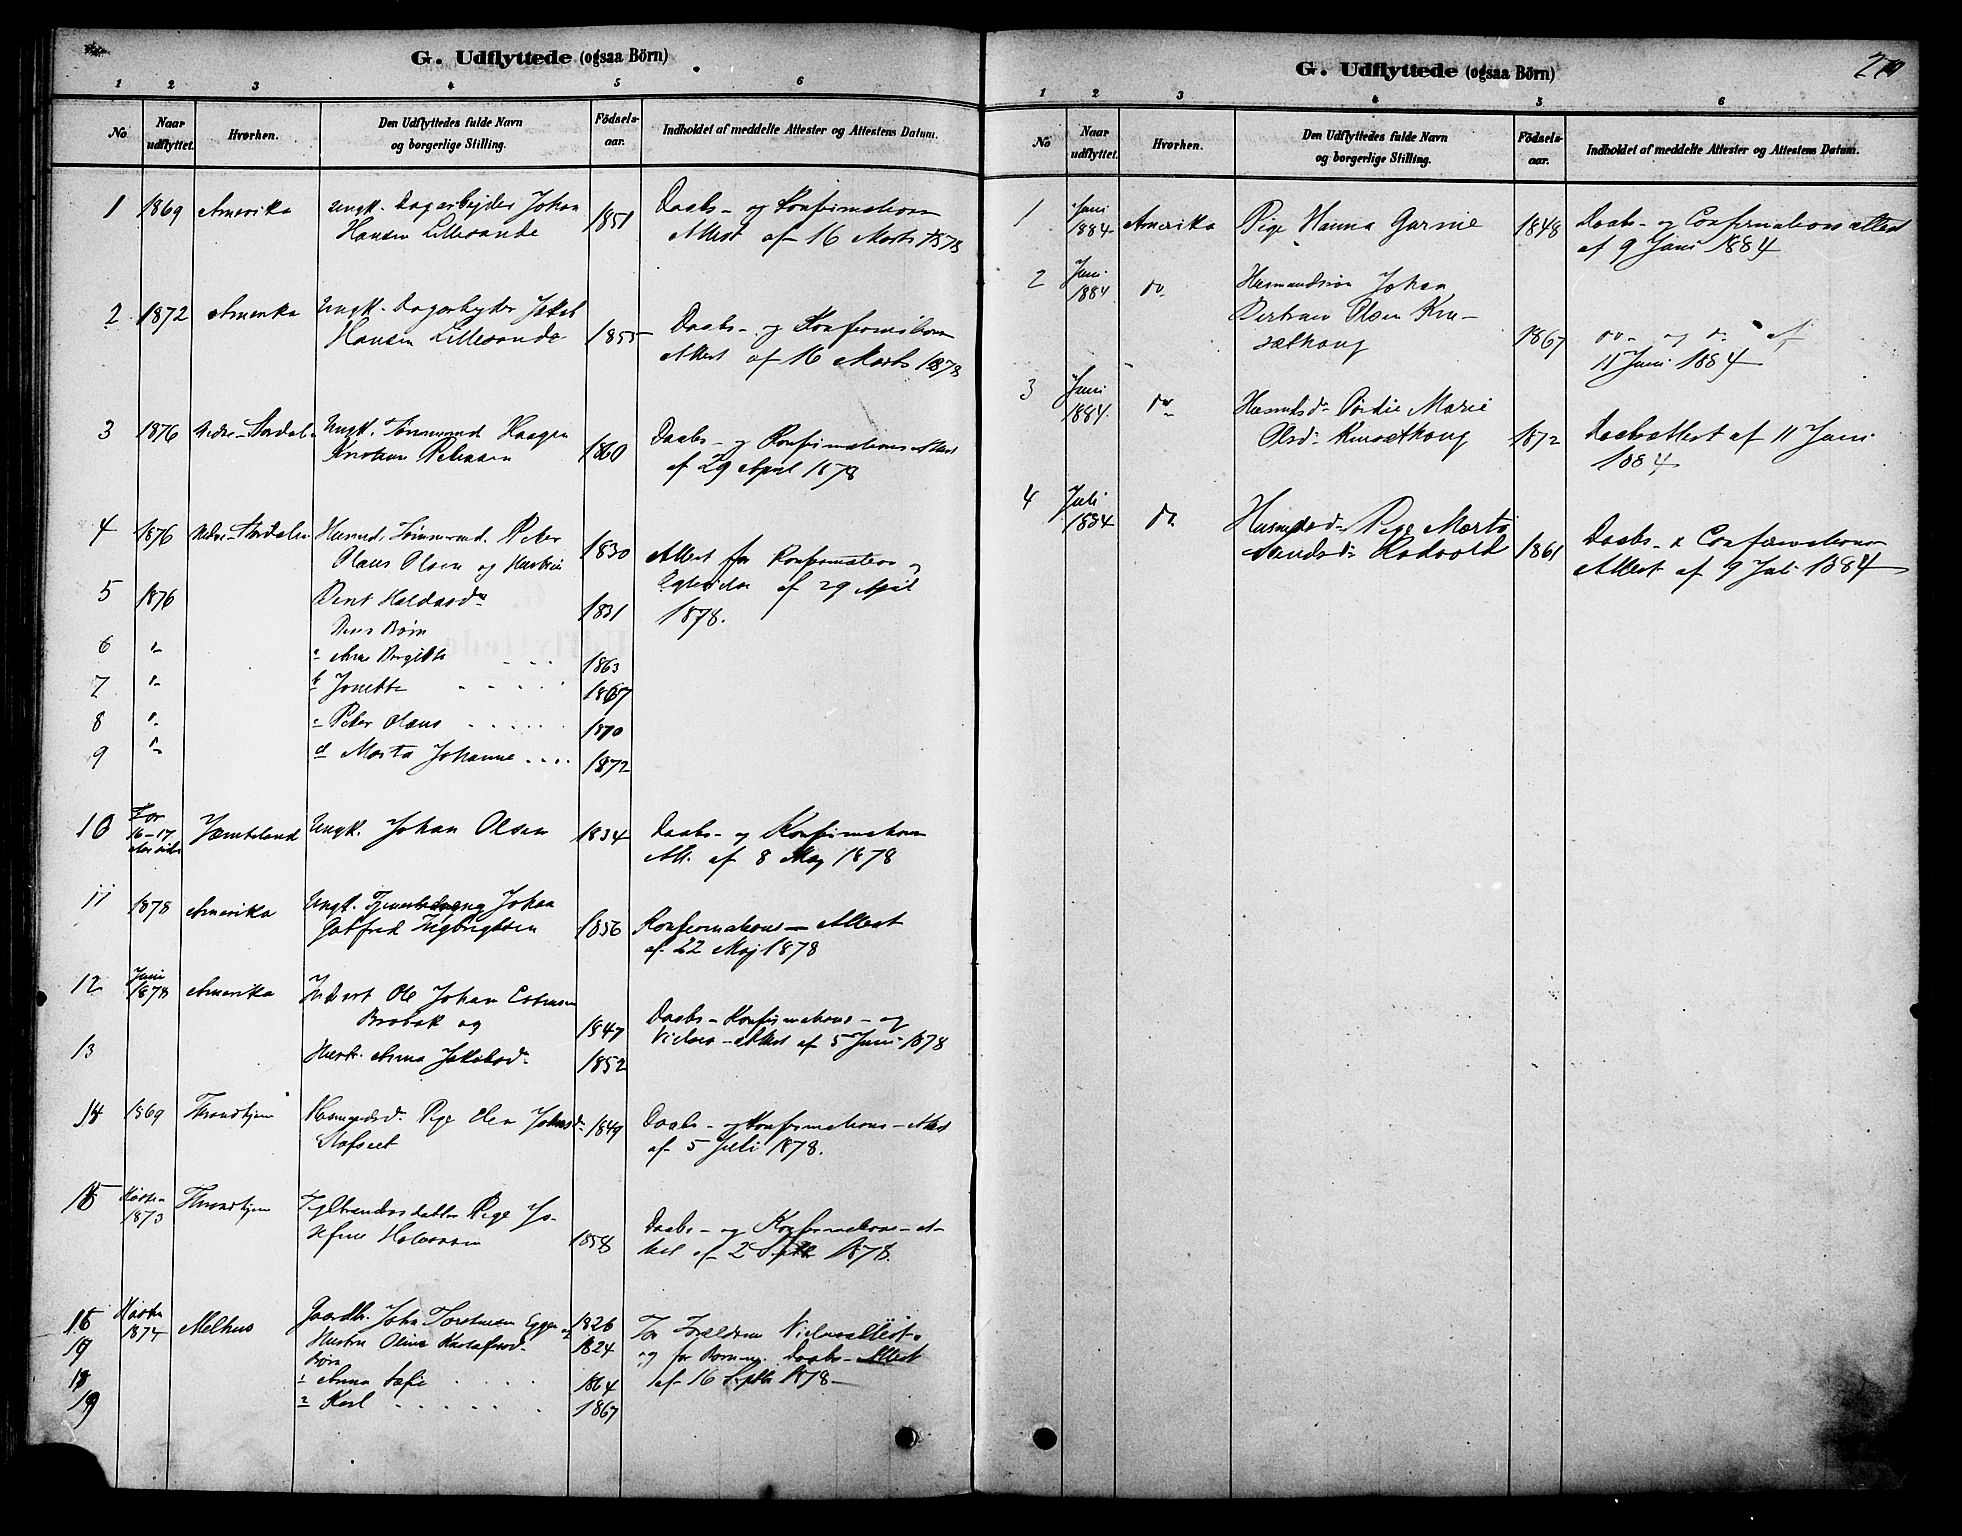 G. Udflyttede (ogsaa Börn)
1 2 3 4 5 6
No
Naar udflyttet.
Hvorhen.
Den Udflyttedes fulde Navn
og borgerlige Stilling.
Födsels-
aar.
Indholdet af meddelte Attester og Attestens Datum.
1 1869 Amerika Ungk. Dagarbejder Johan 1851 Daabs- og Konfirmations
Hansen Lillesande Attest af 16 Marts 1878
2 1872 Amerika Ungk. Dagarbejder Jakob 1855 Daabs- og Konfirmations
Hansen Lillesande Attest af 16 Marts 1878
3 1876 Nedre-Stordalen Ungk. Tømmermd Haagen 1860 Daabs- og Konfirmations Attest
Petersen af 29 April 1878
4 1876 Nedre-Stordalen Husmd. Tømmermd. Peter 1830 Attest for Konfirmation
Olaus Olsen og Hustru
5 1876 Haldosd 1831 af 29 April
Deres Børn 1878.
6 " a Ane Bergitte 1863
7 " b Jonette 1867
8 " c Peter Olaus 1870
9 " d Marta Johanne 1872
10 For 16-17 Aar siden Jæmteland Ungk. Johan Olsen 1834 Daabs- og Konfirmations
Att. af 8 Maj 1878
11 1878 Amerika Ungk. Johan 1856 Konfirmations-Attest
Gotfred Ingbrigtsen af 22 Maj 1878
12 Juni 1878 Amerika Inderst Ole Johan Estensen 1847 Daabs-Konfirmations- og
Brobak og Vielses-Attest af 5 Juni 1878
13 Hustr. Anna Jakobsd 1852
14 1869 Throndhjem Husmandsd. Pige Johnsd 1849 Daabs- og Konfirmations-Attest
af 5 Juli 1878.
15 Høsten 1873 Throndhjem Pige Jo- 1858 Daabs- og Konfirmations-At-
sefine af 2 Septb 1878.
16 Høsten 1874 Melhus Gaardbr. John Torstensen Eggen og 1826 For Forældrene Vielsesattest
17 Hustru Olina 1824 og for Børnene Daabs-Attest
Børn af 16 Septbr 1878
18 1 Anna Sofie 1864
19 2 Karl 1867
G. Udflyttede (ogsaa Börn)
1 2 3 4 5 6
No
Naar udflyttet.
Hvorhen.
Den Udflyttedes fulde Navn
og borgerlige Stilling.
Födsels-
aar.
Indholdet af meddelte Attester og Attestens Datum.
1 Juni 1884 Amerika Pige Hanna Garnie 1848 Daabs- og Confirmations attest
af 9 Juni 1884
2 Juni 1884 do Husmandssøn Johan
Bertram Olsen 1867 do og do af
11 Juni 1884
3 Juni 1884. do Marie 1872 Daabsattest af 11 Juni
Olsd 1884
4 Juli 1884 do Pige Marta 1861 Daabs- & Confirmations
Attest af 9 Juli 1884